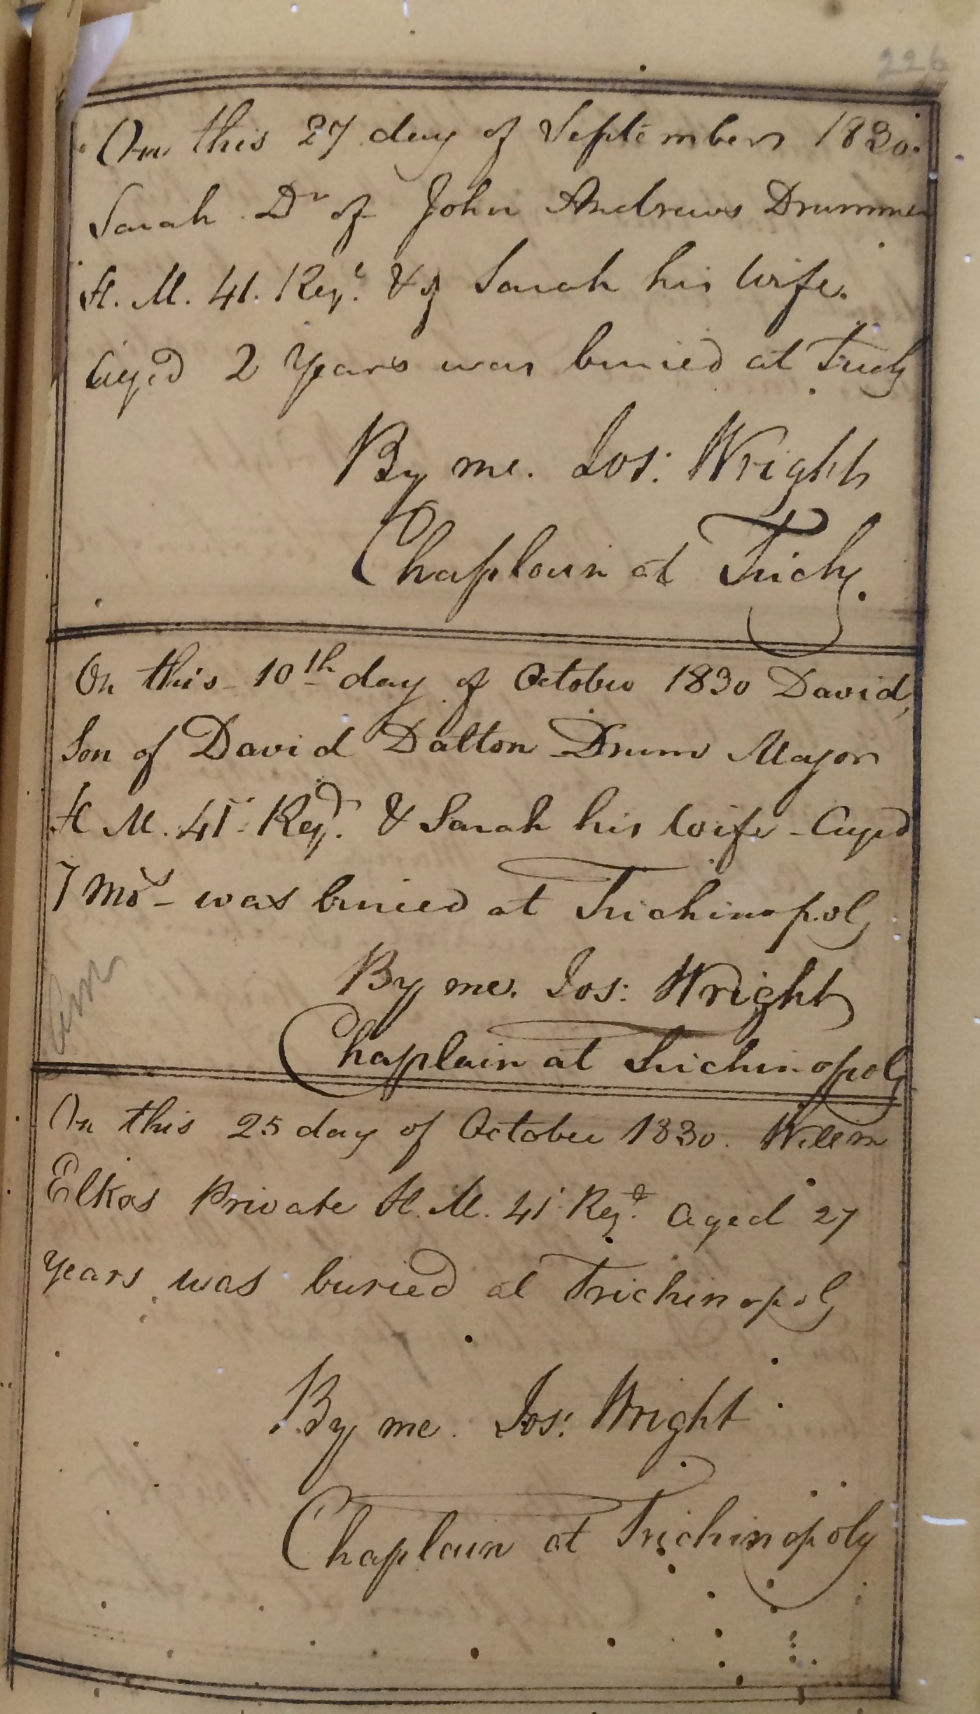 226
On this 27 day of September 1830.
Sarah Dr of John Andrews Drummer
H. M. 41. Regt. & of Sarah his wife.
aged 2 Years was buried at Trichy
By me. Jos: Wright
Chaplain at Trichy.
On this 10th day of October 1830 David,
Son of David Dalton Drum Major
H M. 41st Regt. & Sarah his wife - Aged
7 Mos - was buried at Trichinopoly
By me. Jos: Wright
Chaplain at Trichinopoly
On this 25 day of October 1830. Willm
Elkas Private H. M. 41 Regt. aged 27
years was buried at Trichinopoly
By me. Jos: Wright
Chaplain at Trichinopoly